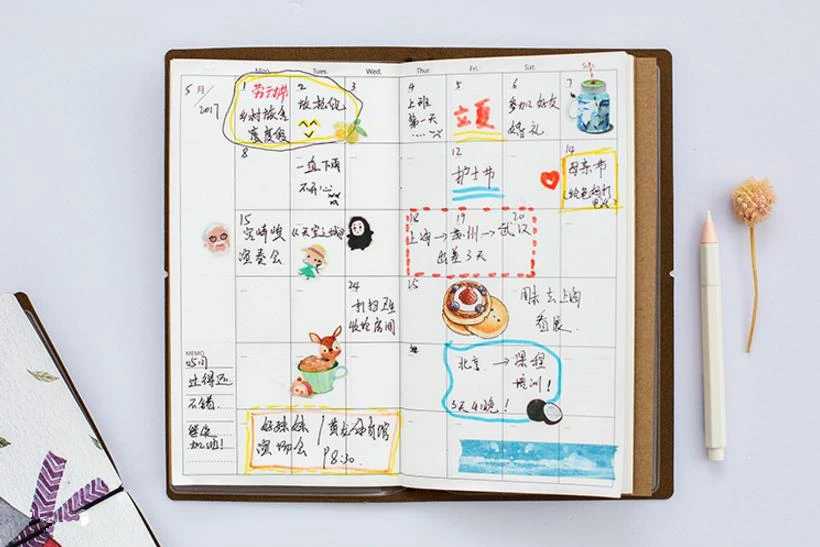 Mon. Tues. Wed. Thur. Fri. Sat. Sun.
5月/2017
1 劳动节
乡村旅舍
度假
2
放松
3
4
上班
第一天
5
立夏
6
参加好友
婚礼
7
8
一直下雨
不开心
12
护士节
14
母亲节
15
宫崎骏
演奏会
《天空之城》
18 19 20
上海→苏州→武汉
出差3天
24
收拾房间
25
周末去上海
看展
北京→课程
培训!
5天4晚!
MEMO
05月
过得还
不错
继续
加油!
好妹妹/黄龙体育馆
演唱会 P8:30